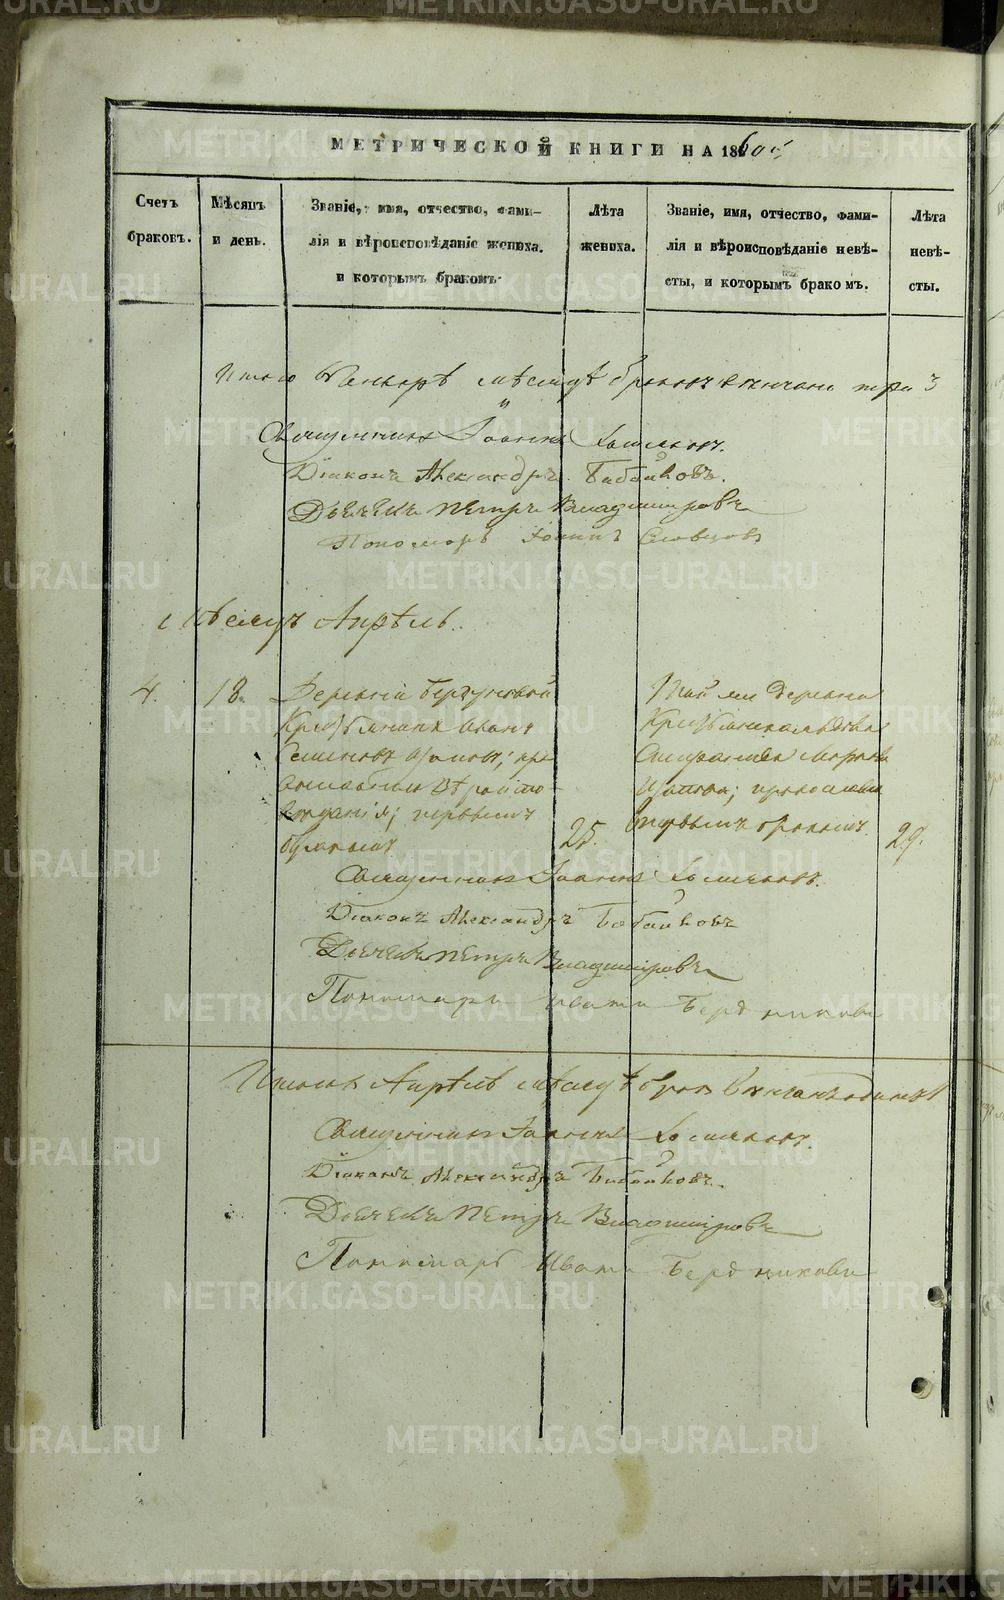 МЕТРИЧЕСКОЙ КНИГИ НА 1860й
Счетъ браковъ.
Мѣсяцъ и день.
Званіе, имя, отчество, фами-
лія и вѣроисповѣданіе жениха.
и которымъ бракомъ.
Лѣта жениха.
Званіе, имя, отчество, фами-
лія и вѣроисповѣданіе невѣ-
сты, и которымъ бракомъ.
Лѣта невѣ-
сты.
Итого Январѣ мѣсяцѣ браковъ вѣнчано три 3
Священникъ Іоаннъ Хомяковъ.
Діаконъ Александръ Бибиковъ.
Дьячекъ Петръ Владиміровъ
Пономарь Іоаннъ Словцовъ
Мѣсяцъ Апрѣль.
4. 18. Деревни
Крестьянинъ Иванъ
Семеновъ
первымъ
бракомъ 25.
Той же деревни
Крестьянская
первымъ бракомъ 29.
Священникъ Іоаннъ Хомяковъ.
Діаконъ Александръ Бибиковъ
Дьячекъ Петръ Владиміровъ
Пономарь Иванъ Бердниковъ
Апрѣлѣ мѣсяцѣ бракъ вѣнчанъ одинъ 1
Священникъ Іоаннъ Хомяковъ.
Діаконъ Александръ Бибиковъ.
Дьячекъ Петръ Владиміровъ
Пономарь Иванъ Бердниковъ
METRIKI.GASO-URAL.RU